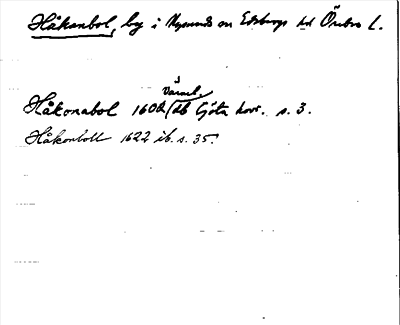 Håkanbol, by i Nysunds sn Edsbergs hd Örebro l.
Värml.
Håkonabol 1602 (Db Göta hovr. s. 3.
Håkonboll 1622 ib. s. 35.